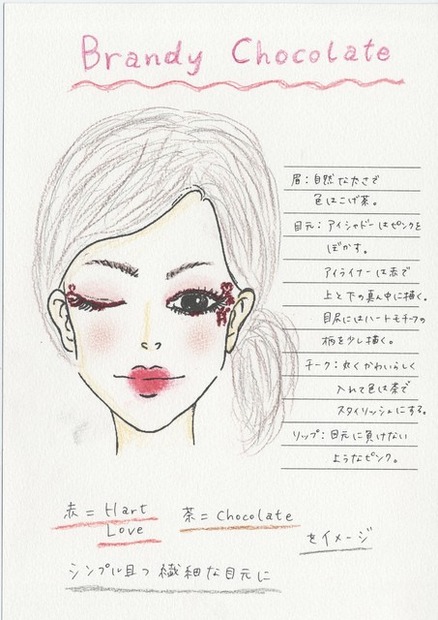 Brandy Chocolate
眉：自然な太さで
色はこげ茶。
目元：アイシャドーはピンクを
ぼかす。
アイライナーは赤で
上と下の真ん中に描く。
目尻にはハートモチーフの
柄を少し描く。
チーク：丸くかわいらしく
入れて色は茶で
スタイリッシュにする。
リップ：目元に負けない
ようなピンク。
赤 = Hart 茶 = Chocolate
Love をイメージ
シンプル且つ繊細な目元に